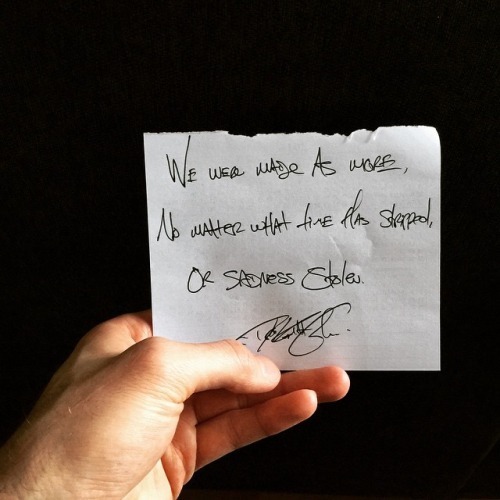 We were made as more,
No matter what time has stripped,
Or sadness stolen.